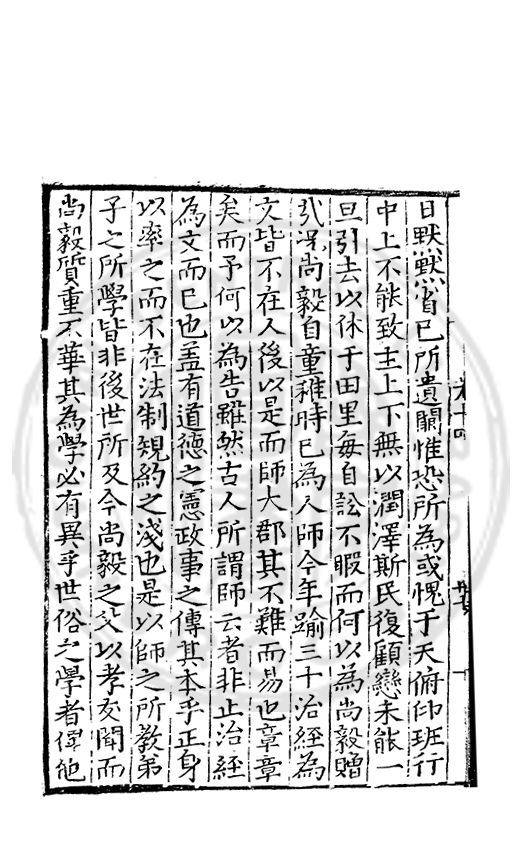 日默默省已所遺闕惟恐所為或愧于天俯仰班行
中上不能致主上下無以潤澤斯民復顧戀未能一
旦引去以休于田里每自訟不暇而何以為尚毅贈
哉况尚毅自童稚時已為人師今年踰三十治經為
文皆不在人後以是而師大郡其不難而易也章章
矣而予何以為告雖然古人所謂師云者非止治經
為文而已也蓋有道德之憲政事之傳其本乎正身
以率之而不在法制規約之淺也是以師之所教弟
子之所學皆非後世所及今尚毅之父以孝友聞而
尚毅質重不華其為學必有異乎世俗之學者俾他